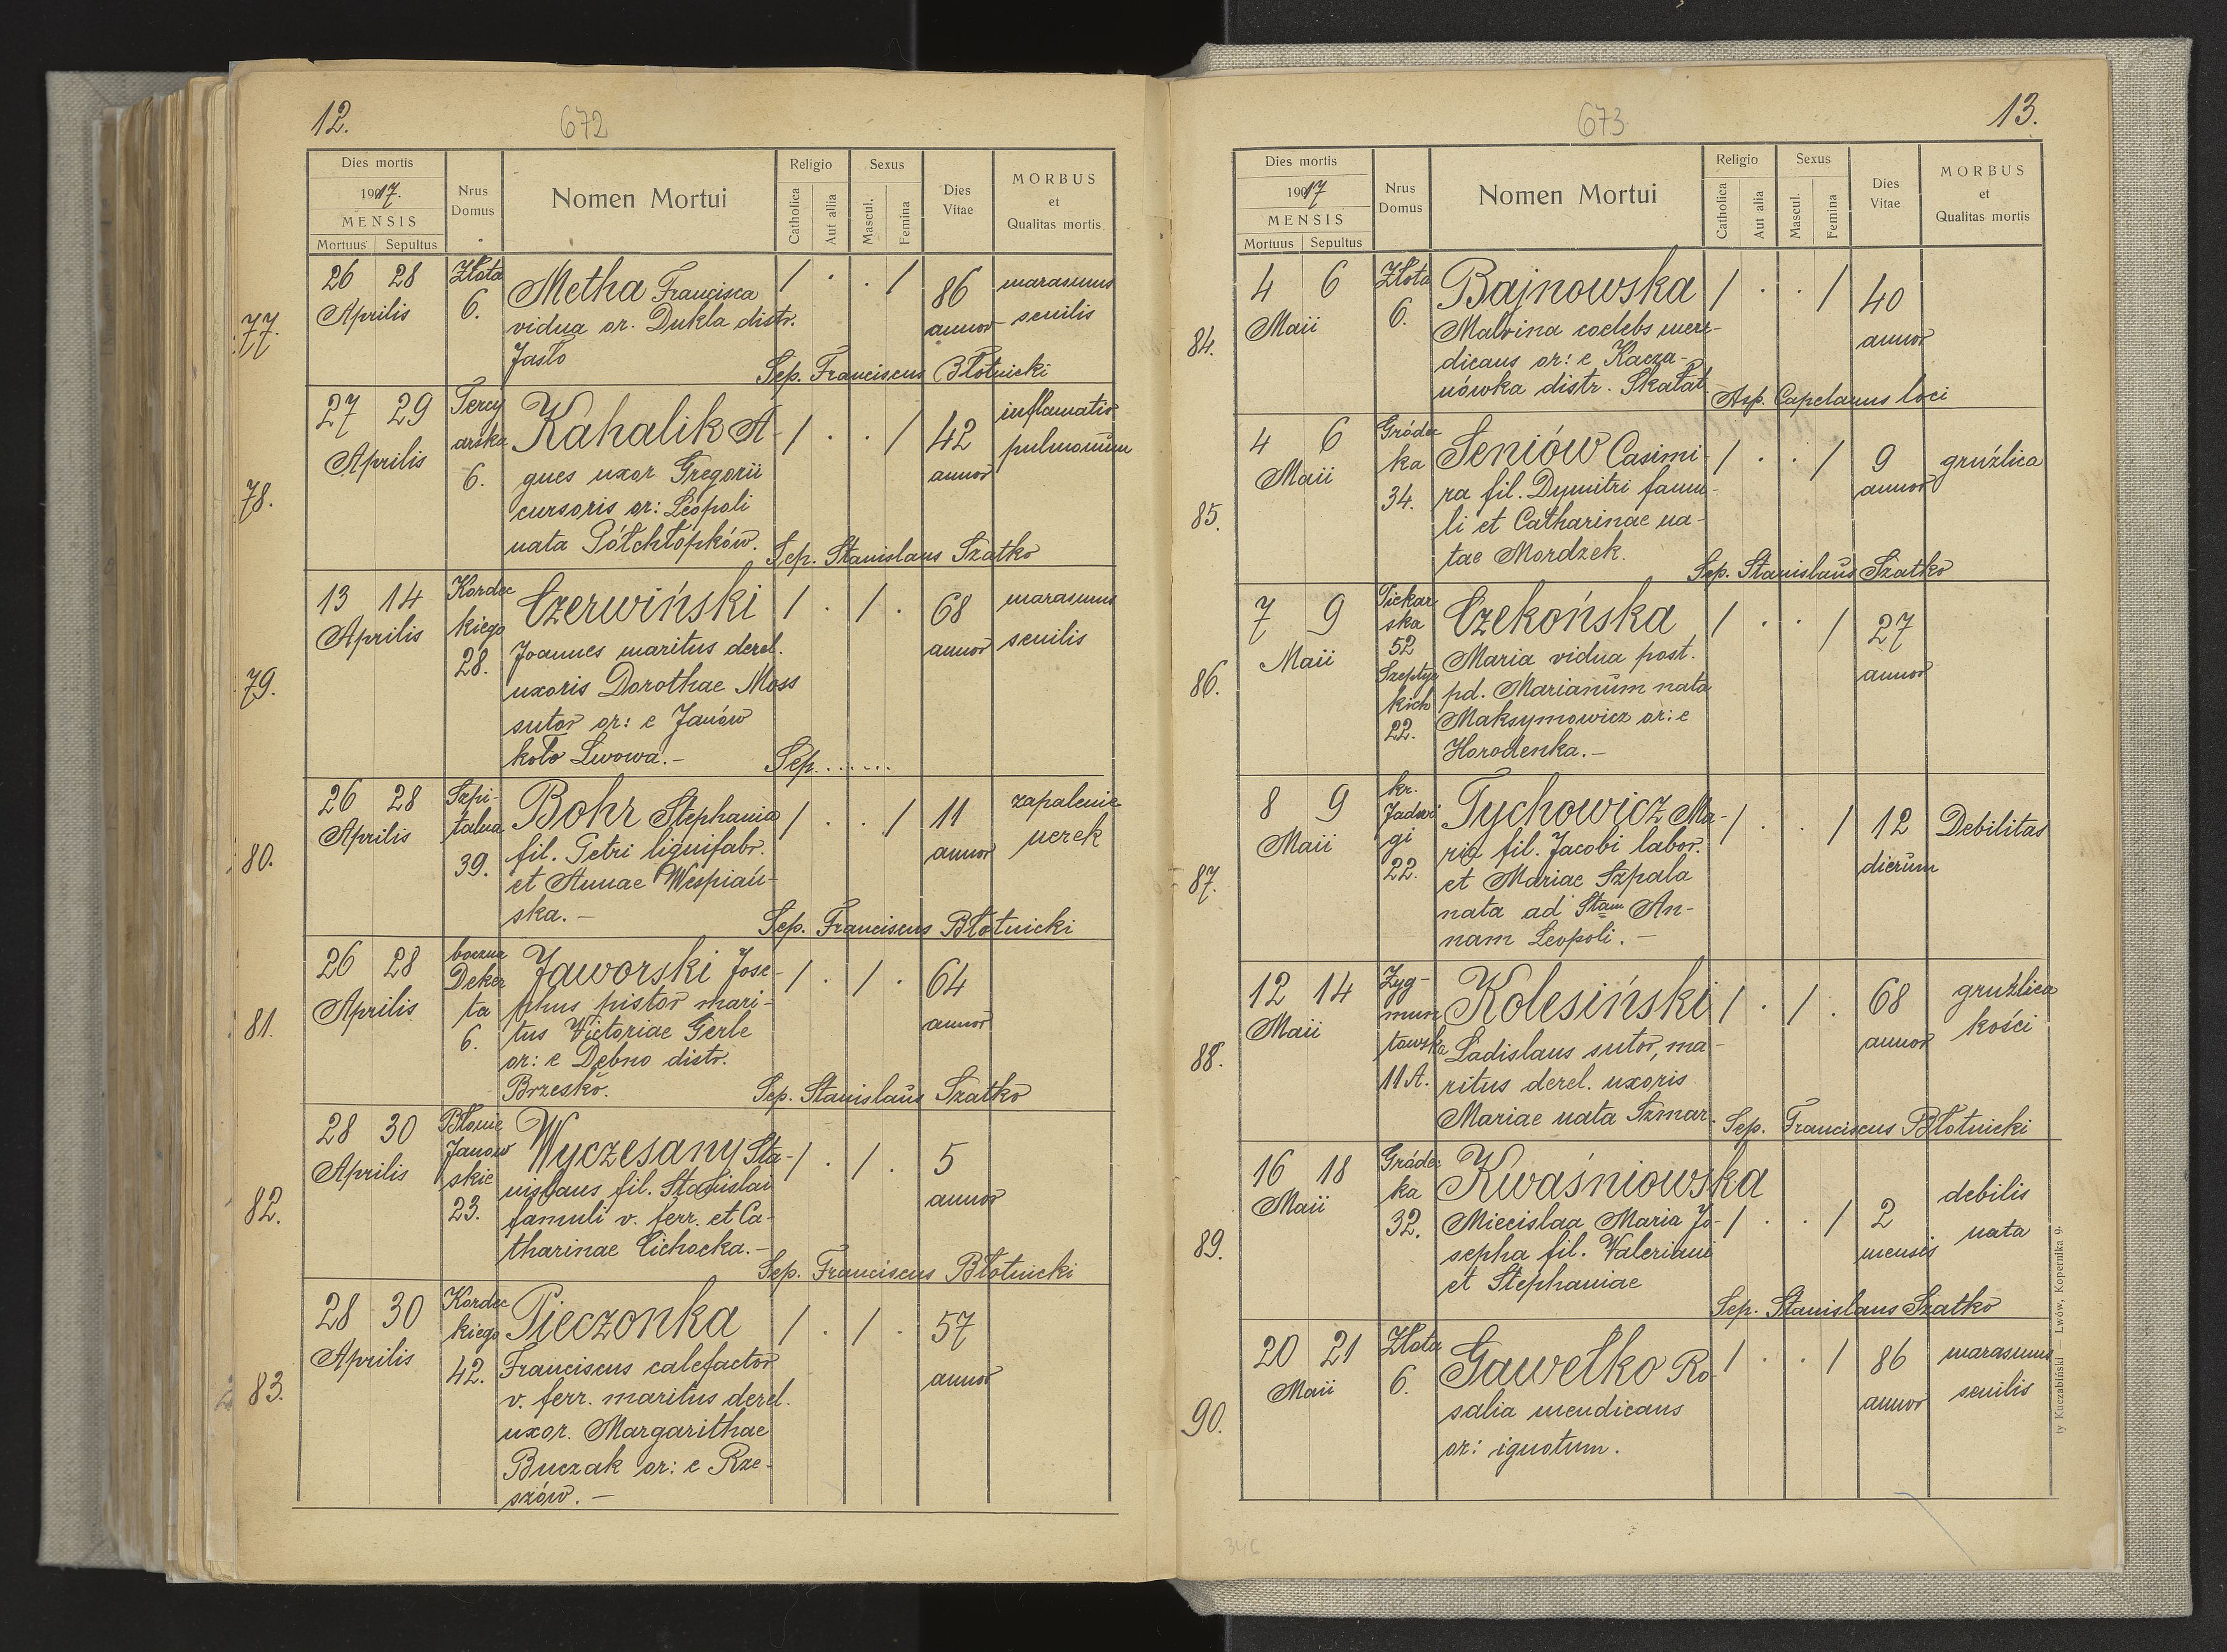 12.
672
Dies mortis
1917.
MENSIS
Mortuus Sepultus
Nrus Domus
Nomen Mortui
Religio
Catholica
Aut allia
Sexus
Mascul.
Femina
Dies Vitae
MORBUS
et
Qualitas mortis
77.
26 28 Złota Metha Francisca / . . / 86 marasmus
Aprilis 6. vidua or. Dukla distr. annor senilis
Jasło
Sep. Franciscus Błotnicki
78.
27 29 Tercy Kahalik A- / . . / 42 inflamatio
Aprilis arska gnes uxor Gregorii annor pulmonum
6. cursoris or: Leopoli
nata Półchłopków.
Sep. Stanislaus Szatko
79.
13 14 Kordec Czerwiński / . / . 68 marasmus
Aprilis kiego Joannes maritus derel. annor senilis
28. uxoris Dorothae Moss
sutor or: e Janów
koło Lwowa.-
Sep.......
80.
26 28 Szpi- Bohr Stephania / . . / 11 zapalenie
Aprilis talna fil. Petri lignifabr. annor nerek
39. et Annae Wespiań-
ska.-
Sep. Franciscus Błotnicki
81.
26 28 boczna Jaworski Jose- / . / . 64
Aprilis Deker phus pistor mari- annor
ta tus Victoriae Gerle
6. or: e Dębno distr.
Brzesko.
Sep. Stanislaus Szatko
82.
28 30 Błonie Wyczesany Sta- / . / . 5
Aprilis Janow nislaus fil. Stanislai annor
skie famuli v. ferr. et Ca-
23. tharinae Cichocka.-
Sep. Franciscus Błotnicki
83.
28 30 Kordec Pieczonka / . / . 57
Aprilis kiego Franciscus calefactor annor
42. v. ferr. maritus derel.
uxor. Margarithae
Buczak or: e Rze-
szów.-
673
13.
Dies mortis
1917
MENSIS
Mortuus Sepultus
Nrus Domus
Nomen Mortui
Religio
Catholica
Aut alia
Sexus
Mascul.
Femina
Dies Vitae
MORBUS
et
Qualitas mortis
84.
4 6 Złota Bajnowska / . . / 40
Maii 6. Malvina coelebs men- annor
dicans or: e Kacza-
nówka distr. Skałat
Asp. Capelanus loci
85.
4 6 Gródec Seniów Casimi- / . . / 9 gruźlica
Maii ka ra fil. Dymitri famu- annor
34. li et Catharinae na-
tae Mordzek.
Sep. Stanislaus Szatko
86.
7 9 Piekar Czekońska / . . / 27
Maii ska Maria vidua post. annor
52 pd. Marianum nata
Szepty Maksymowicz or: e
kich Horodenka.-
22.
87.
8 9 kr. Tychowicz Ma- / . . / 12 Debilitas
Maii Jadwi ria fil. Jacobi labor. dierum
gi et Mariae Szpala
22. nata ad Stam An-
nam Leopoli.-
88.
12 14 Zyg- Kolesiński / . / . 68 gruźlica
Maii mun Ladislaus sutor, ma- annor kości
towska ritus derel. uxoris
11A. Mariae nata Szmar.
Sep. Franciscus Błotnicki
89.
16 18 Gródec Kwaśniowska
Maii ka Miecislaa Maria Jo- / . . / 2 debilis
32. sepha fil. Valeriani mensis nata
et Stephaniae
Sep. Stanislaus Szatko
90.
20 21 Złota Gawełko Ro- / . . / 86 marasmus
Maii 6. salia mendicans annor senilis
or: ignotum.
ty Kuczabiński — Lwów, Kopernika 9.
346